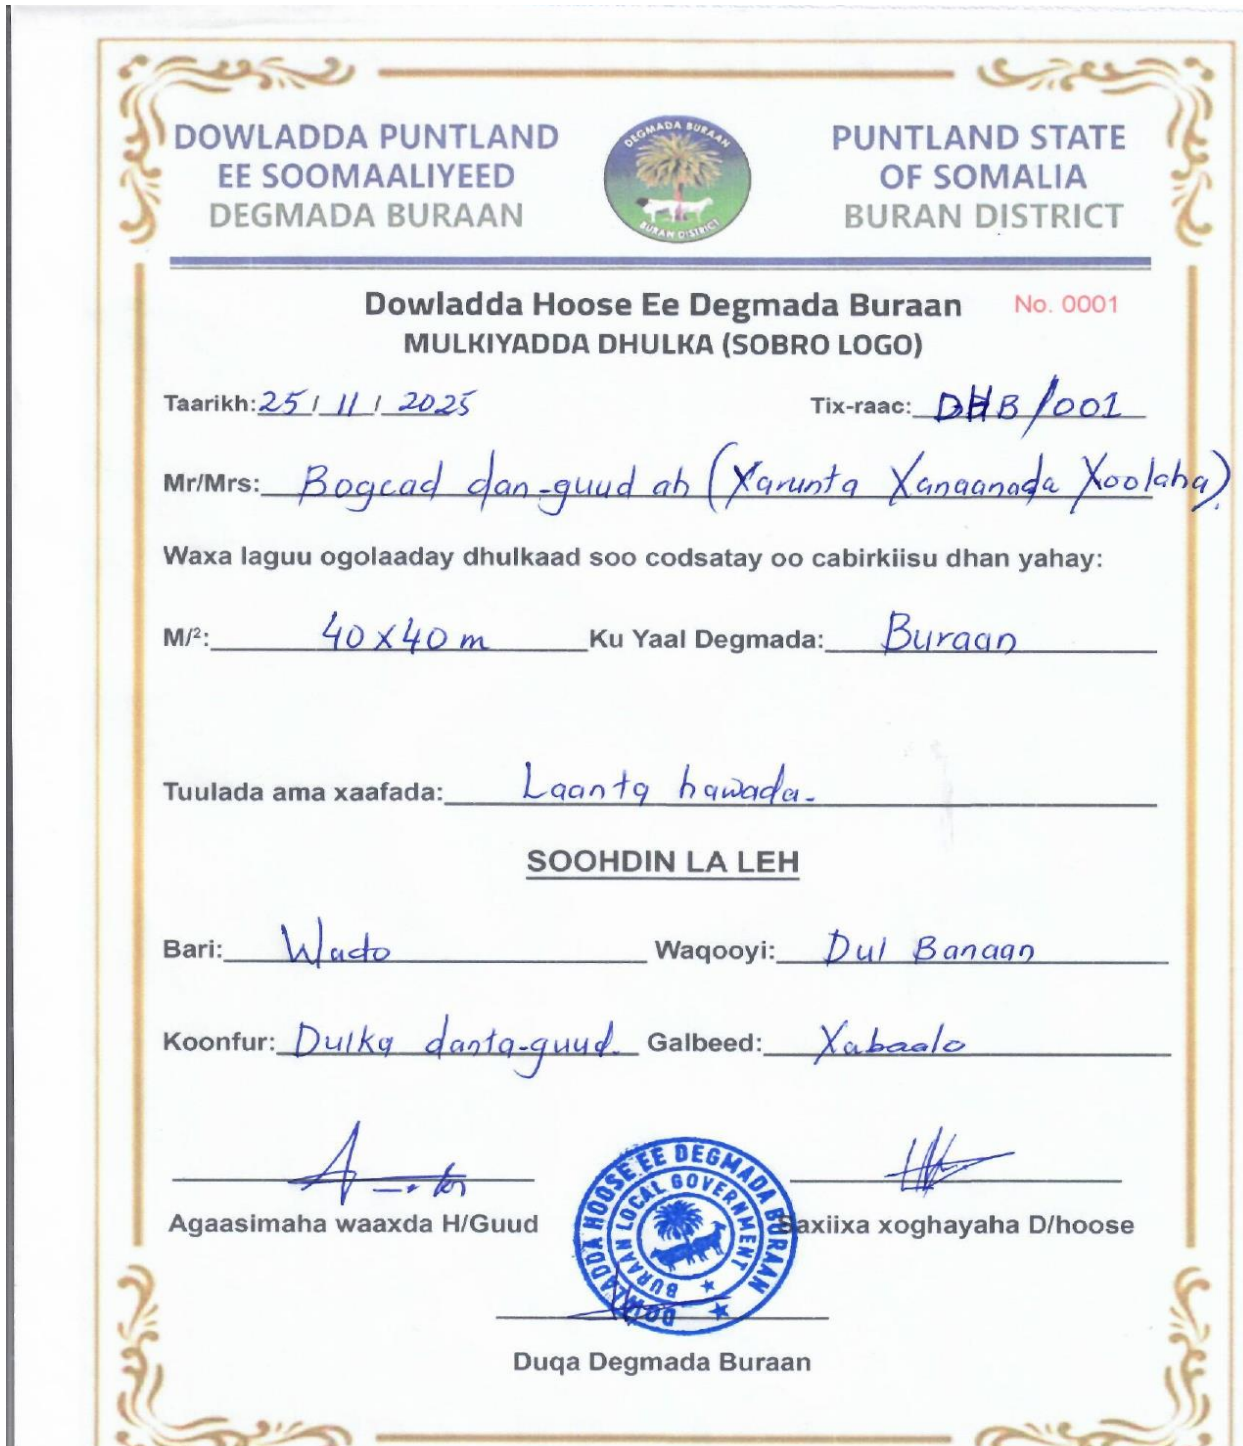 DOWLADDA PUNTLAND
EE SOOMAALIYEED
DEGMADA BURAAN
DEGMADA BURAAN
BURAN DISTRICT
PUNTLAND STATE
OF SOMALIA
BURAN DISTRICT
Dowladda Hoose Ee Degmada Buraan No. 0001
MULKIYADDA DHULKA (SOBRO LOGO)
Taarikh: 25 / 11 / 2025 Tix-raac: DHB/001
Mr/Mrs: Bogcad dan-guud ah (Xarunta Xanaanada Xoolaha).
Waxa laguu ogolaaday dhulkaad soo codsatay oo cabirkiisu dhan yahay:
M/²: 40 x 40 m Ku Yaal Degmada: Buraan
Tuulada ama xaafada: Laanta hawada.
SOOHDIN LA LEH
Bari: Wado Waqooyi: Dul Banaan
Koonfur: Dulka danta-guud. Galbeed: Xabaalo
Agaasimaha waaxda H/Guud Saxiixa xoghayaha D/hoose
DOWLADDA HOOSE EE DEGMADA BURAAN
BURAAN LOCAL GOVERNMENT
Duqa Degmada Buraan